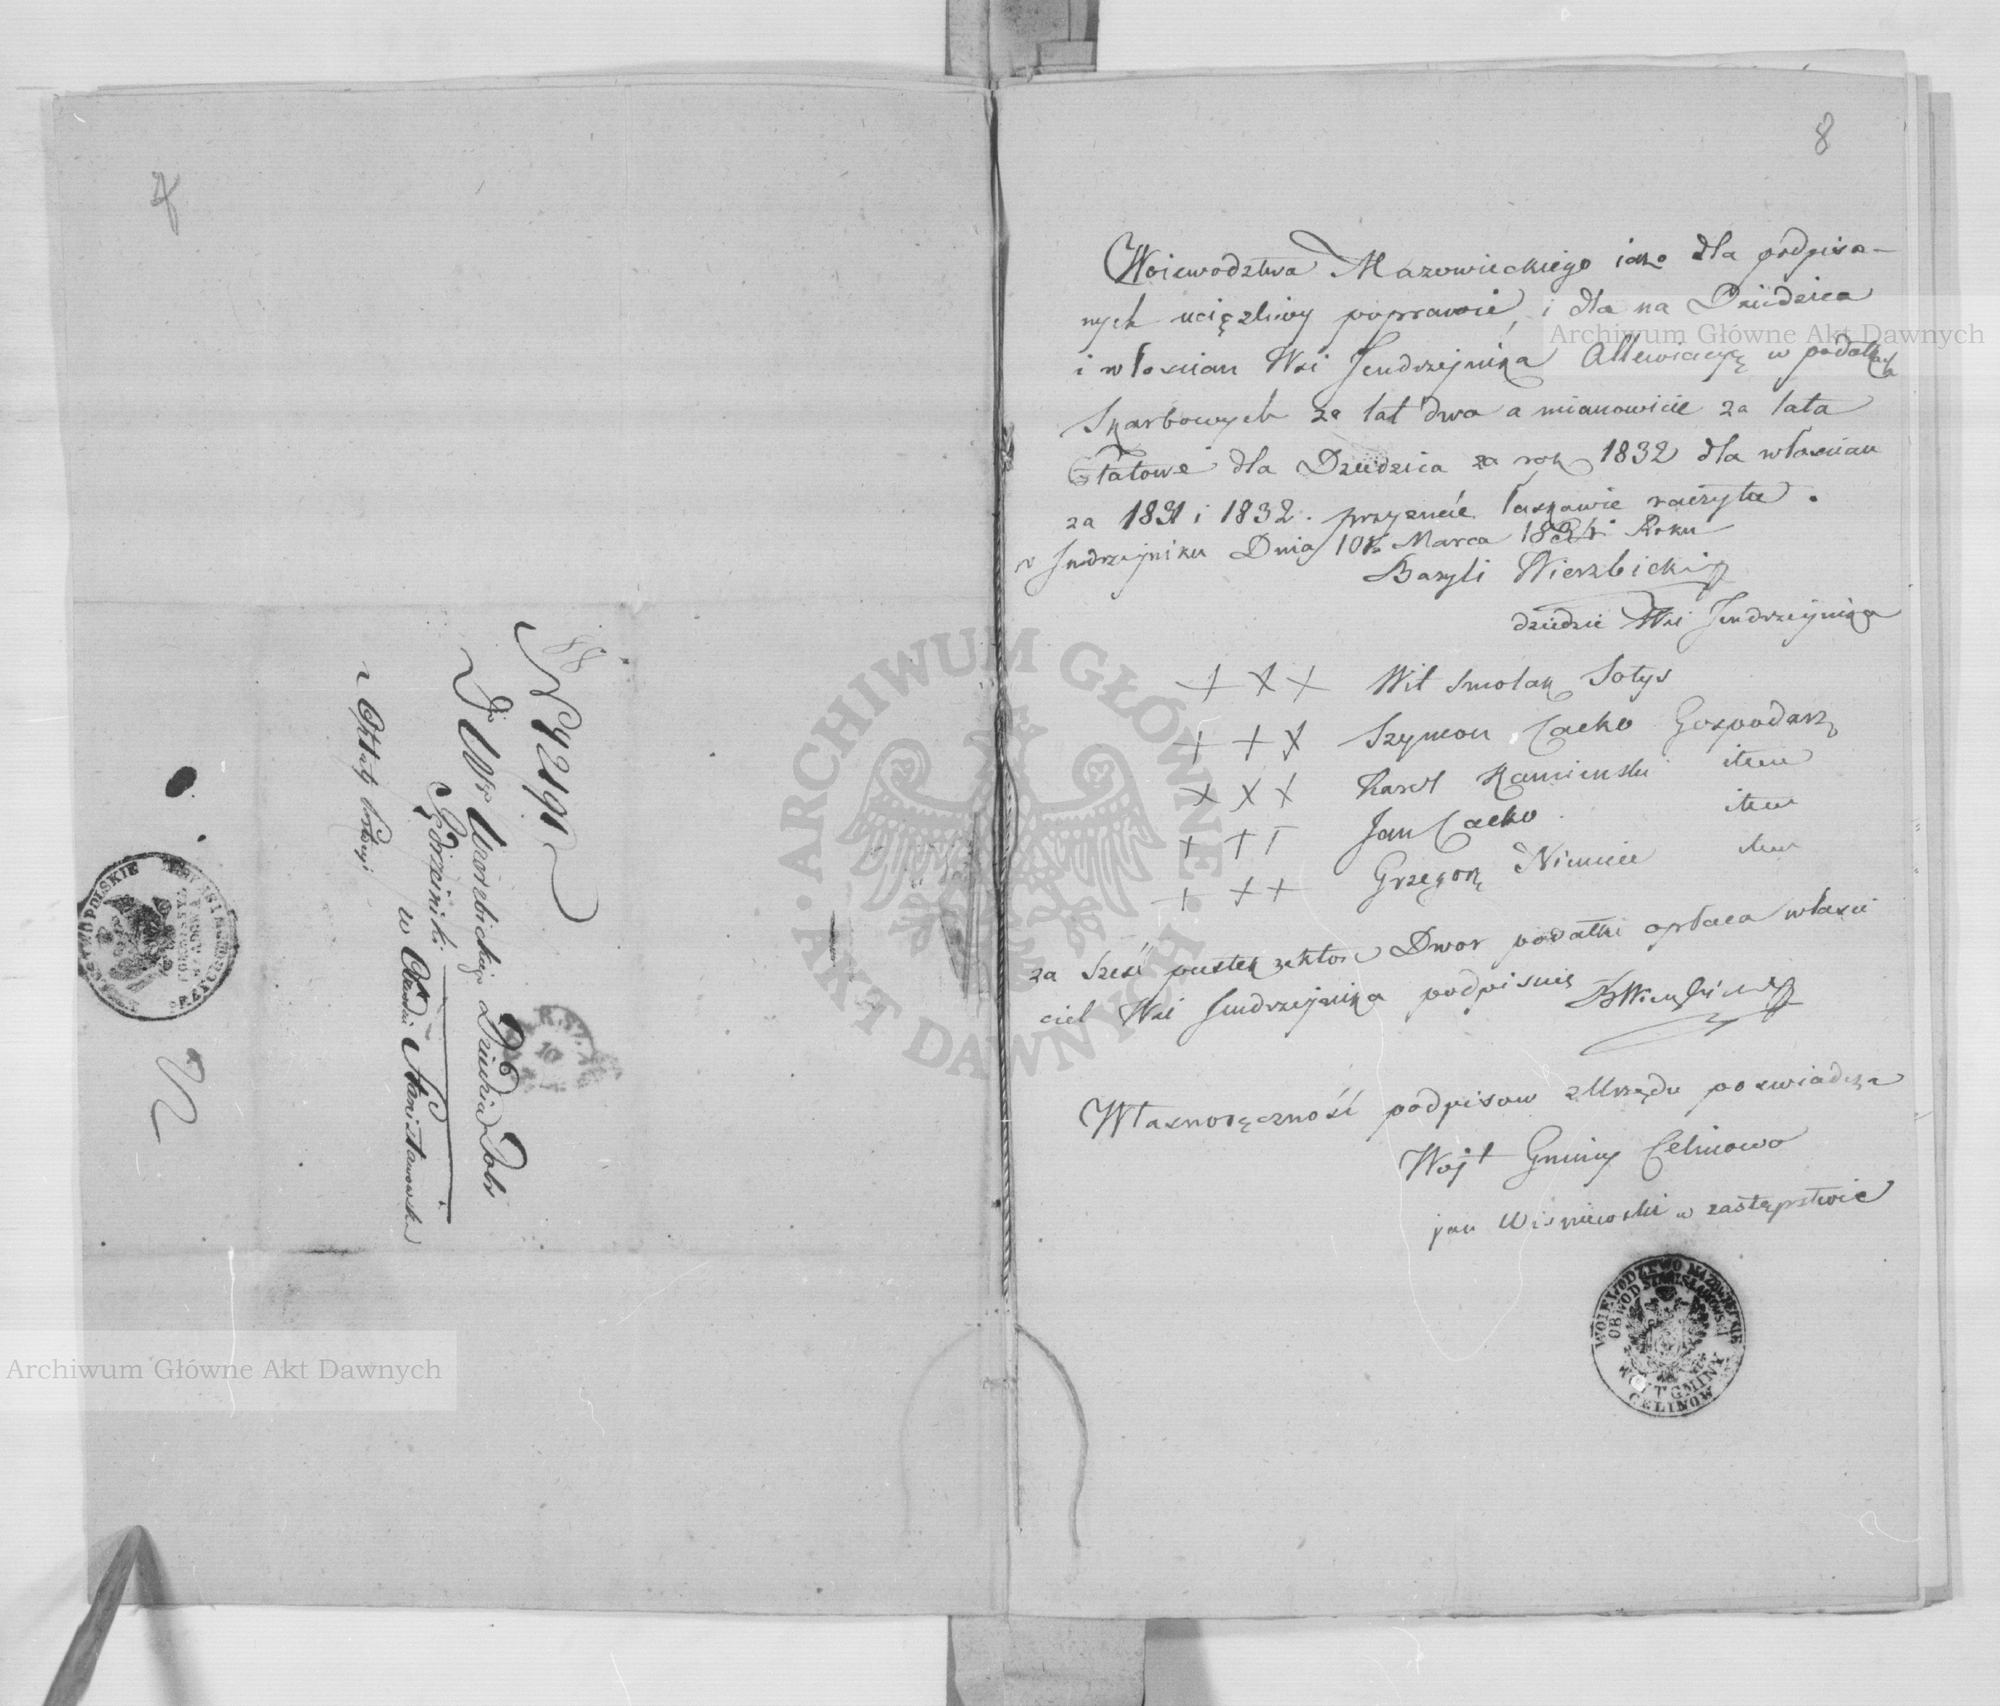 8
Woiewodztwa Mazowieckiego iako dla podpisa-
nych uciążliwy poprawić, i dla na Dziedzica
i włoscian Wsi Jendrzejnika Allewiacyę w podatkach
Skarbowych za lat dwa a mianowicie za lata
Etatowe dla Dziedzica za rok 1832 dla włoscian
za 1831 i 1832. przyznać łaskawie raczyła.
w Jndrzejniku Dnia 10 Marca 1834 Roku
Bazyli Wierzbicki
dziedzic Wsi Jendrzejnika
+ + + Wit Smolak Sołys
+ + + Szymon Cacko Gospodarz
+ + + Karol Kamienski item
+ + + Jan Cacko item
+ + + Grzegorz Niemiec item
za Szesć pustek zktor Dwor podatki opłaca własci
ciel Wsi Jendrzejnika podpisuię BWierzbicki
Własnoręczność podpisow zUrzędu poswiadcza
Wojt Gminy Celinowo
jan Wisniewski w zastępstwie
WOIEWODZTWO MAZOWIECKIE
OBWOD STANISŁAWOWSKI
WOYT GMINY
CELINOW
88
N 2191
Do Wgo Wierzbickiego Dziedzica Dobr
Jędrzeiniki
w Obwodzie Stanisławowsk
Opłaty
10
Archiwum Główne Akt Dawnych
Archiwum Główne Akt Dawnych
ARCHIWUM GŁÓWNE
AKT DAWNYCH